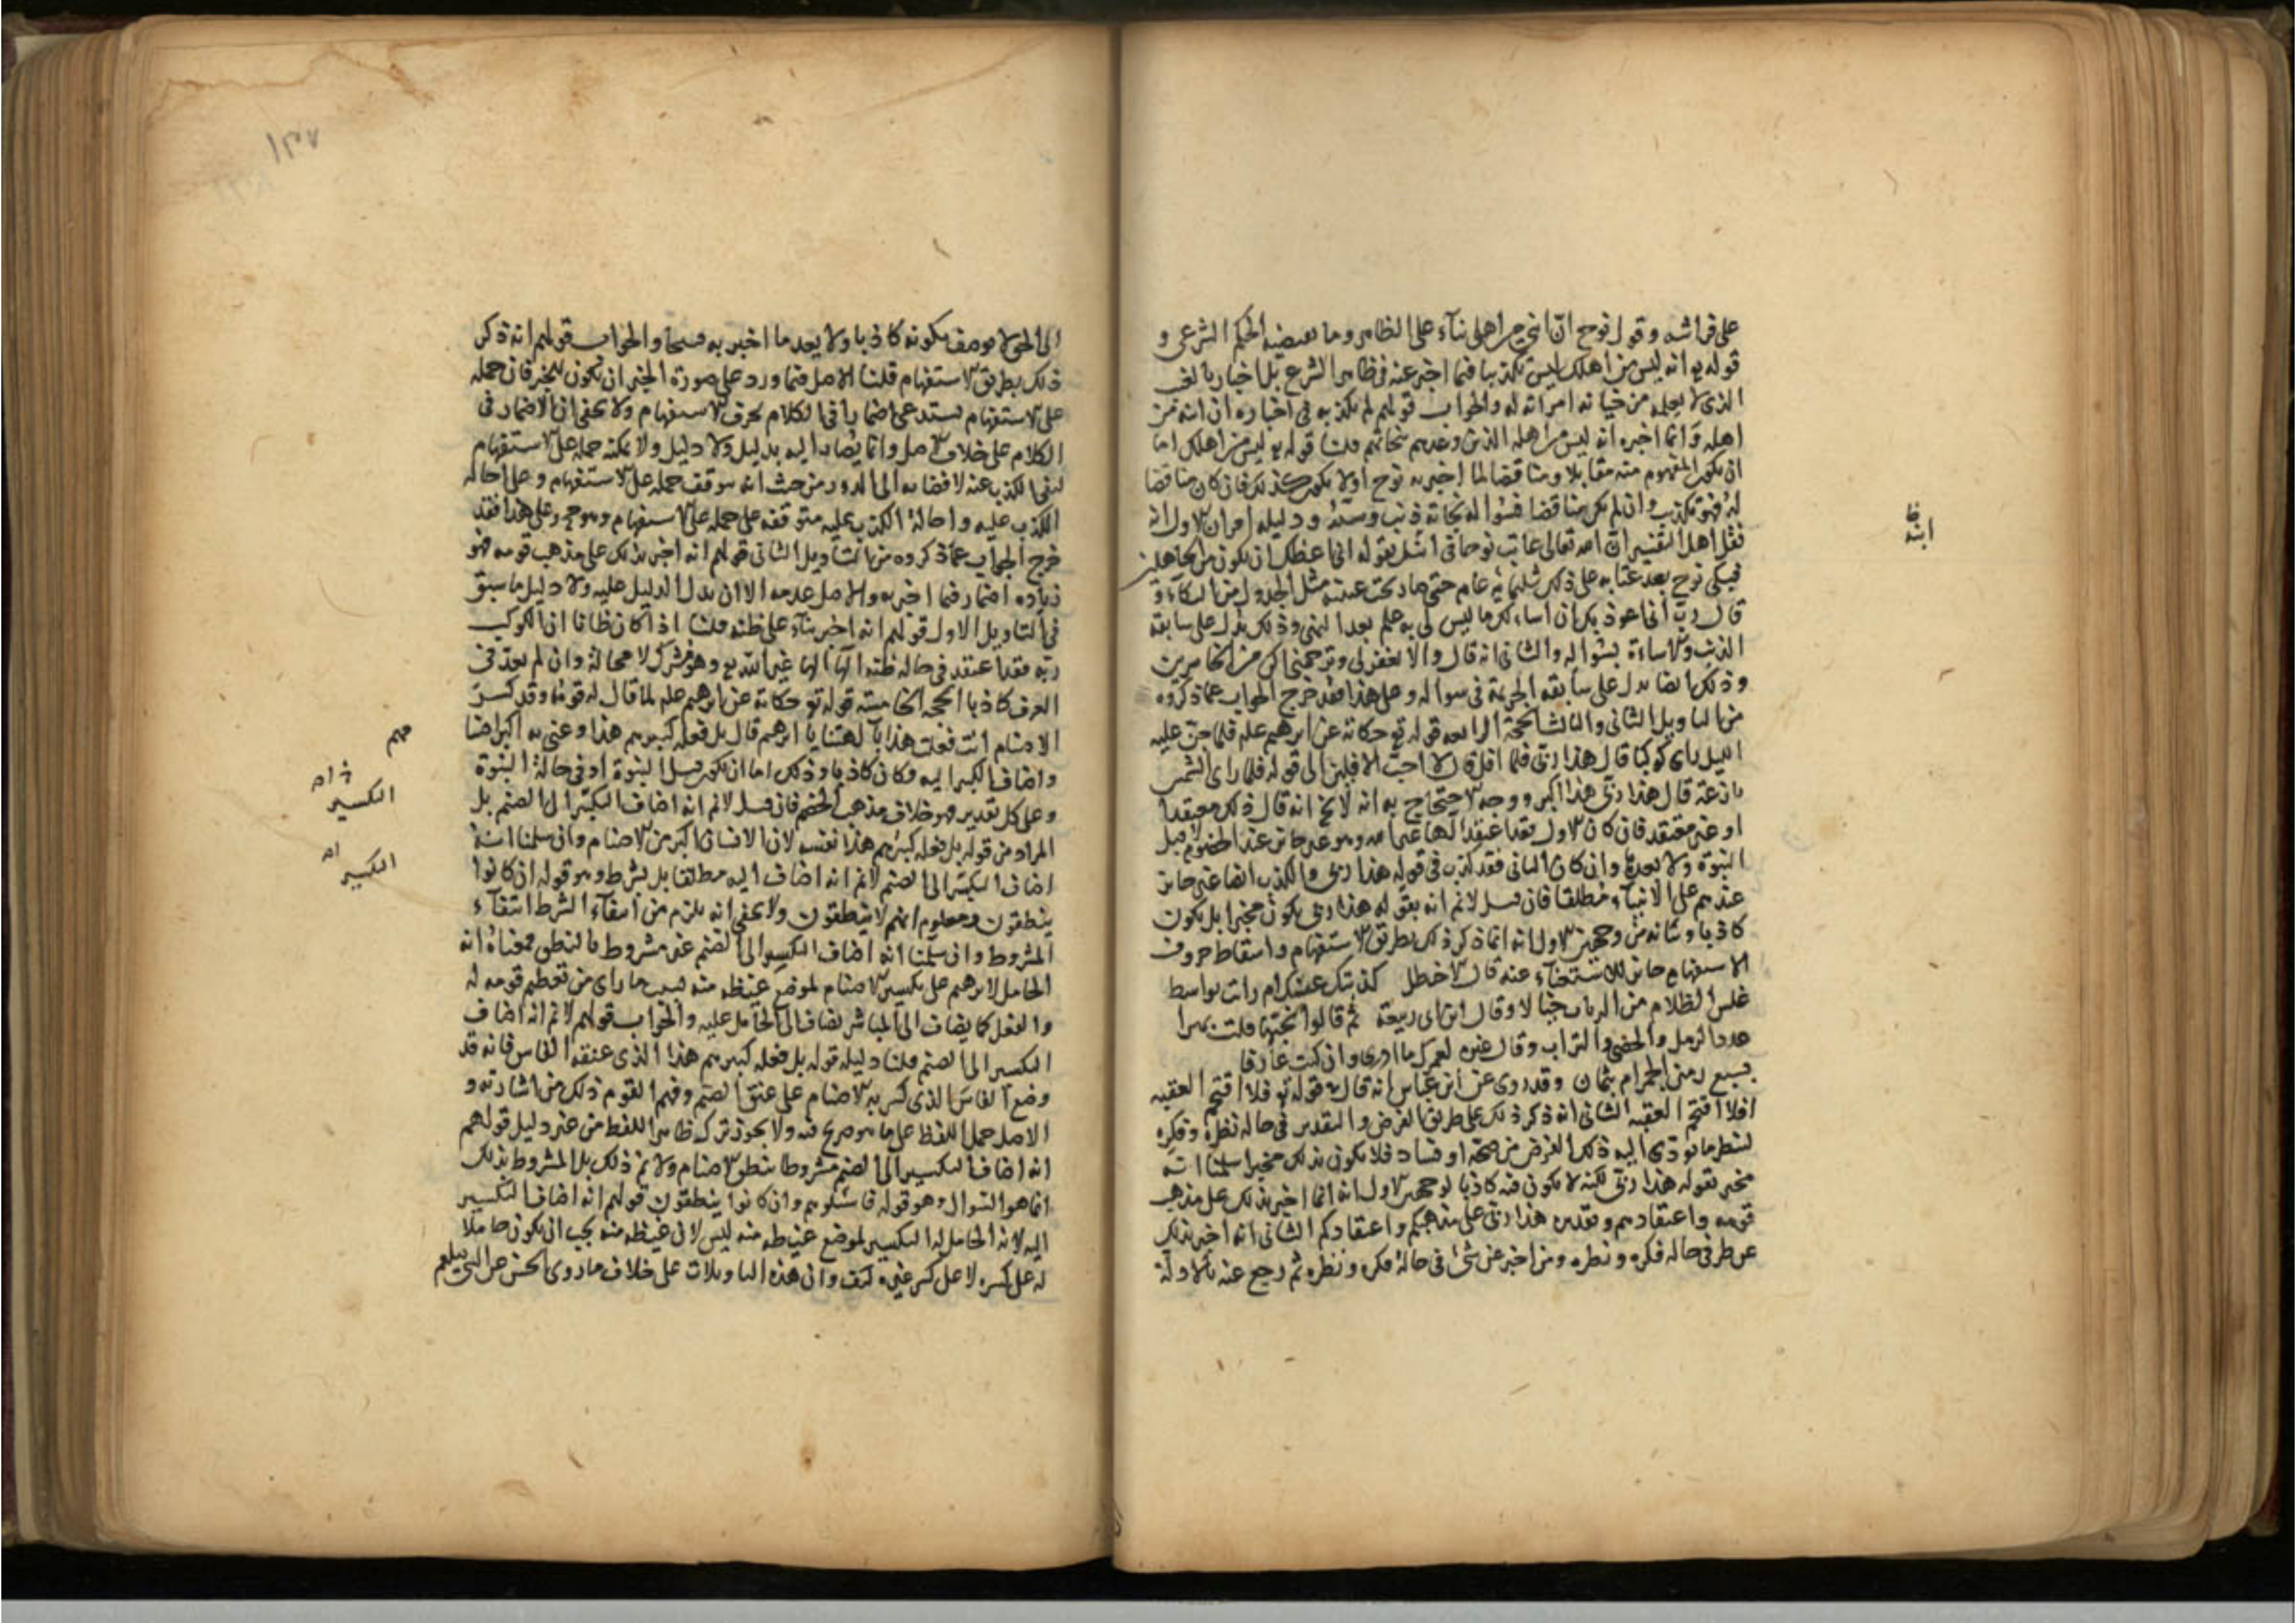 على فراشه وقول نوح ان ابني من اهلي بناء على الظاهر وما يقتضيه الحكم الشرعي و
قوله تع انه ليس من اهلك ليس تكذيبا فيما اخبر عنه في ظاهر الشرع بل اخبار بالغيب
الذي لا يعلمه من خيانة امراته له والجواب قولهم لم يكذبه في اخباره ان ابنه من
اهله وانما اخبره انه ليس من اهله الذين وعدهم بنجاتهم قلنا قوله تع ليس من اهلك اما
ان يكون المفهوم منه مقابلا ومناقضا لما اخبر به نوح اولا يكون كذلك فان كان مناقضا
له فهو تكذيب وان لم يكن مناقضا فسؤاله نجاته ذنب وسيئة ودليله امران الاول انه
نقل اهل التفسير ان الله تعالى عاتب نوحا في ابنه بقوله اني اعظك ان تكون من الجاهلين
فبكى نوح بعد عتابه على ذلك ثلثمائة عام حتى صار تحت عينيه مثل الجدول من البكاء و
قال رب اني اعوذ بك ان اسالك ما ليس لي به علم بعد النهي وذلك يدل على سابقة
الذنب والاساءة بسؤاله والثاني انه قال والا تغفر لي وترحمني اكن من الخاسرين
وذلك ايضا يدل على سابقة الجريمة في سواله وعلى هذا فقد خرج الجواب عما ذكروه
من التاويل الثاني والثالث الحجة الرابعة قوله تع حكاية عن ابرهيم علم فلما جن عليه
الليل راى كوكبا قال هذا ربي فلما افل قال لا احب الافلين الى قوله فلما راى الشمس
بازغة قال هذا ربي هذا اكبر ووجه الاحتجاج به انه لا يخ انه قال ذلك معتقدا
او غير معتقد فان كان الاول فقد اعتقد الها غير الله وهو غير جائز عند الخصوم قبل
النبوة ولا بعدها وان كان الثاني فقد كذب في قوله هذا ربي والكذب ايضا غير جائز
عندهم على الانبياء مطلقا فان قيل لا نم انه بقوله هذا ربي يكون مخبرا بل يكون
كاذبا وبيانه من وجهين الاول انه انما ذكر ذلك بطريق الاستفهام واسقاط حروف
الاستفهام جائز للاستغناء عنه قال الاخطل كذبتك عينك ام رايت بواسط
غلس الظلام من الرباب خيالا وقال ابن ابي ربيعة ثم قالوا تحبها قلت بهرا
عدد الرمل والحصى والتراب وقال غيره لعمرك ما ادري وان كنت عارفا
بسبع رمين الجمرام بثمان وقد روى عن ابن عباس انه قال في قوله تع فلا اقتحم العقبة
افلا اقتحم العقبة الثاني انه ذكر ذلك على طريق الفرض والتقدير في حالة نظره وفكره
لينظر ما يؤدي اليه ذلك الفرض من صحة او فساد فلا يكون بذلك مخبرا سلمنا انه
مخبر بقوله هذا ربي لكنه لا يكون فيه كاذبا لوجهين الاول انه انما اخبر بذلك على مذهب
قومه واعتقادهم وتقديره هذا ربي على مذهبكم واعتقادكم الثاني انه اخبر بذلك
عن ظن في حالة فكره ونظره ومن اخبر عن شئ في حالة فكره ونظره ثم رجع عنه بالادلة
ظ
ابنه
١٣٧
الى الحق لا يوصف بكونه كاذبا ولا يعد ما اخبر به قبيحا والجواب قولهم انه ذكر
ذلك بطريق الاستفهام قلنا الاصل فيما ورد على صورة الخبر ان يكون للخبر فان حمله
على الاستفهام يستدعي اضمارا في الكلام لحرف الاستفهام ولا يخفى ان الاضمار في
الكلام على خلاف الاصل وانما يصار اليه بدليل ولا دليل ولا يمكنه حمله على الاستفهام
لنفي الكذب عنه لافضائه الى الدور من حيث انه يتوقف حمله على الاستفهام على احالة
الكذب عليه واحالة الكذب عليه متوقفة على حمله على الاستفهام وهو دور وعلى هذا فقد
خرج الجواب عما ذكروه من التاويل الثاني قولهم انه اخبر بذلك على مذهب قومه فهو
زيادة اضمار فيما اخبر به والاصل عدمه الا ان يدل الدليل عليه ولا دليل ما سبق
في التاويل الاول قولهم انه اخبر بناء على ظنه قلنا اذا كان ظانا ان الكوكب
ربه فقد اعتقد في حالة ظنه الها الها غير الله تع وهو شرك لا محالة وان لم يعد في
العرف كاذبا الحجة الخامسة قوله تع حكاية عن ابرهيم علم لما قال له قومه وقد كسر
الاصنام ائنت فعلت هذا بآلهتنا يا ابرهيم قال بل فعله كبيرهم هذا وعنى به اكبر
واضاف الكسر اليه وكان كاذبا وذلك اما ان يكون قبل النبوة او في حالة النبوة
وعلى كل تقدير فهو خلاف مذهب الخصم فان قيل لا نم انه اضاف الكسر الى الصنم بل
المراد من قوله بل فعله كبيرهم هذا نفسه لان الانسان اكبر من الاصنام وان سلمنا انه
اضاف الكسر الى الصنم لا نم انه اضاف اليه مطلقا بل بشرط وهو قوله ان كانوا
ينطقون ومعلوم انهم لا ينطقون ولا يخفى انه يلزم من انتفاء الشرط انتفاء
المشروط وان سلمنا انه اضاف التكسير الى الصنم غير مشروط بالنطق فمعناه انه
الحامل لابرهيم على تكسير الاصنام لموضع غيظه منه بسبب ما راى من تعظيم قومه له
والفعل كما يضاف الى المباشر يضاف الى الحامل عليه والجواب قولهم لا نم انه اضاف
التكسير الى الصنم قلنا دليله قوله بل فعله كبيرهم هذا الذي عنقه الفاس فانه قد
وضع الفاس الذي كسر به الاصنام على عنق الصنم وفهم القوم ذلك من اشارته و
الاصل حمل اللفظ على ما هو صريح فيه ولا يجوز ترك ظاهر اللفظ من غير دليل قولهم
انه اضاف التكسير الى الصنم مشروطا بنطق الاصنام ولا نم ذلك بل المشروط بذلك
انما هو السوال وهو قوله فاسئلوهم وان كانوا ينطقون قولهم انه اضاف التكسير
اليه لانه الحامل له التكسير لموضع غيظه منه ليس لان غيظه منه يجب ان يكون حاملا
له على كسره لا على كسر غيره كيف وان هذه التاويلات على خلاف ما روى الحسن عن النبي صلعم
التكسير
التكسير